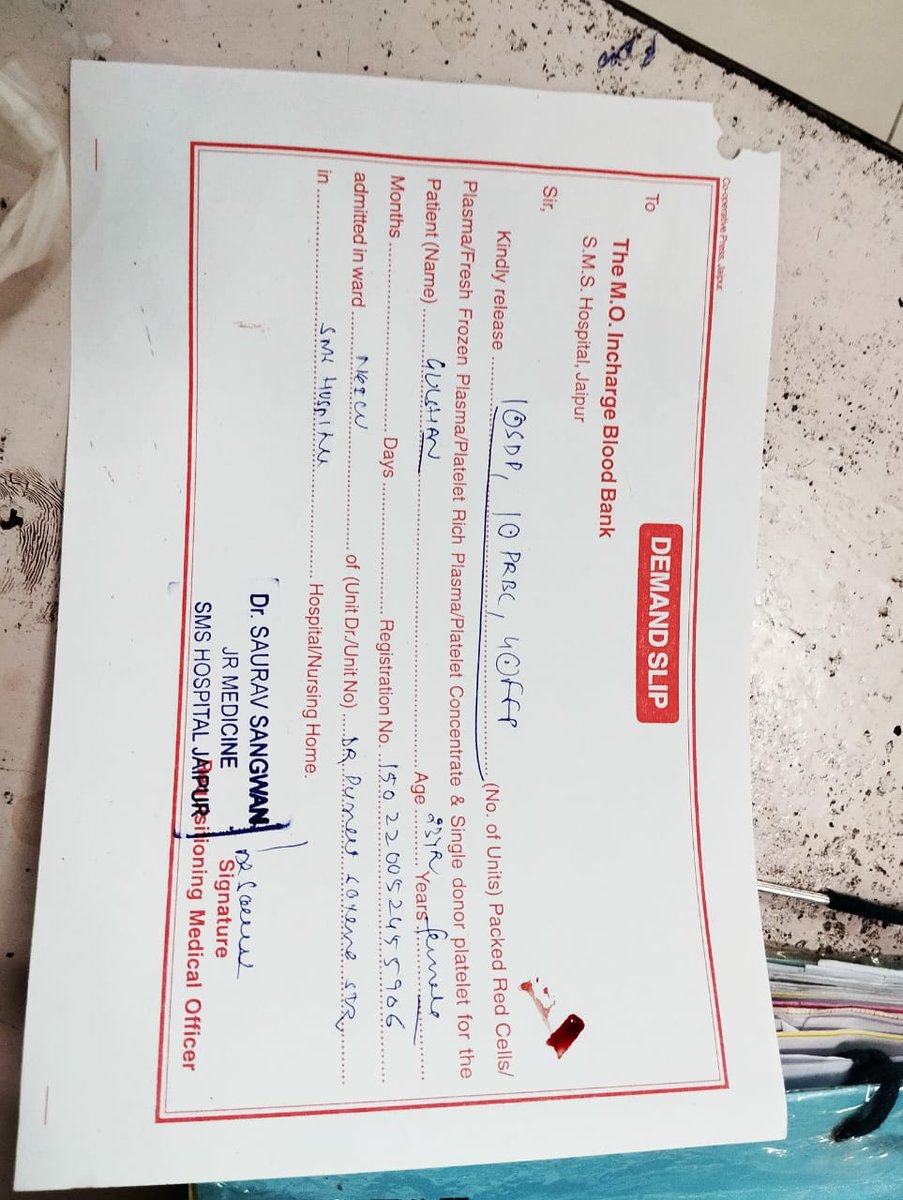 Co-operative Press, Jaipur
DEMAND SLIP
To
The M.O. Incharge Blood Bank
S.M.S. Hospital, Jaipur
Sir,
Kindly release ........ 1 SDP, 1 PRBC, 4 FFP ........ (No. of Units) Packed Red Cells/
Plasma/Fresh Frozen Plasma/Platelet Rich Plasma/Platelet Concentrate & Single donor platelet for the
Patient (Name) ........ GULSHAN ........ Age ........ 23YR Years female ........
Months ........ Days ........ Registration No. 150220052455906
admitted in ward ........ of (Unit Dr./Unit No) .... DR Puneet ........
in ........ SMS ........ Hospital/Nursing Home.
Dr. SAURAV SANGWAN
JR MEDICINE
SMS HOSPITAL JAIPUR
Signature
Medical Officer